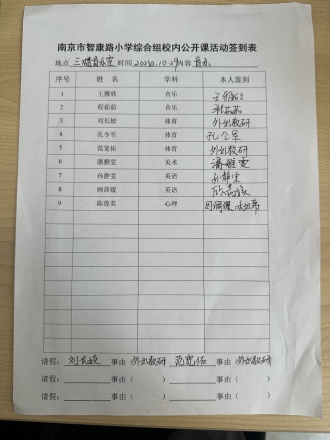 南京市智康路小学综合组校内公开课活动签到表
地点 三楼音乐室 时间 2024.10.29 内容 音乐
序号 姓 名 学科 本人签到
1 王雅欣 音乐
2 程茹茹 音乐 程茹茹
3 刘长姣 体育 外出教研
4 孔令军 体育 孔令军
5 范宽佑 体育 外出教研
6 潘雅雯 美术 潘雅雯
7 孙静雯 英语 孙静雯
8 顾茜媛 英语 顾茜媛
9 陈莲蕊 心理 因调课 未出席
请假: 刘长姣 事由(外出教研) 范宽佑 事由(外出教研)
请假: 事由( ) 事由( )
请假: 事由( ) 事由( )